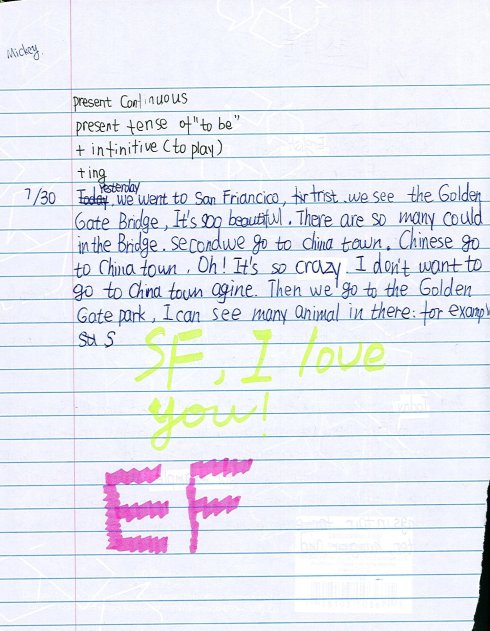 Mickey.
present Continuous
present tense of "to be"
+ infinitive (to play)
+ing
Yesterday
7/30 Today, we went to San Friancico, we see the Golden
Gate Bridge, It's soo beautiful. There are so many could
in the Bridge. Second we go to china town. Chinese go
to China town. Oh! It's so crazy. I don't want to
go to China town agine. Then we go to the Golden
Gate park, I can see many animal in there: for exampl
S
SF, I love
you!
EF